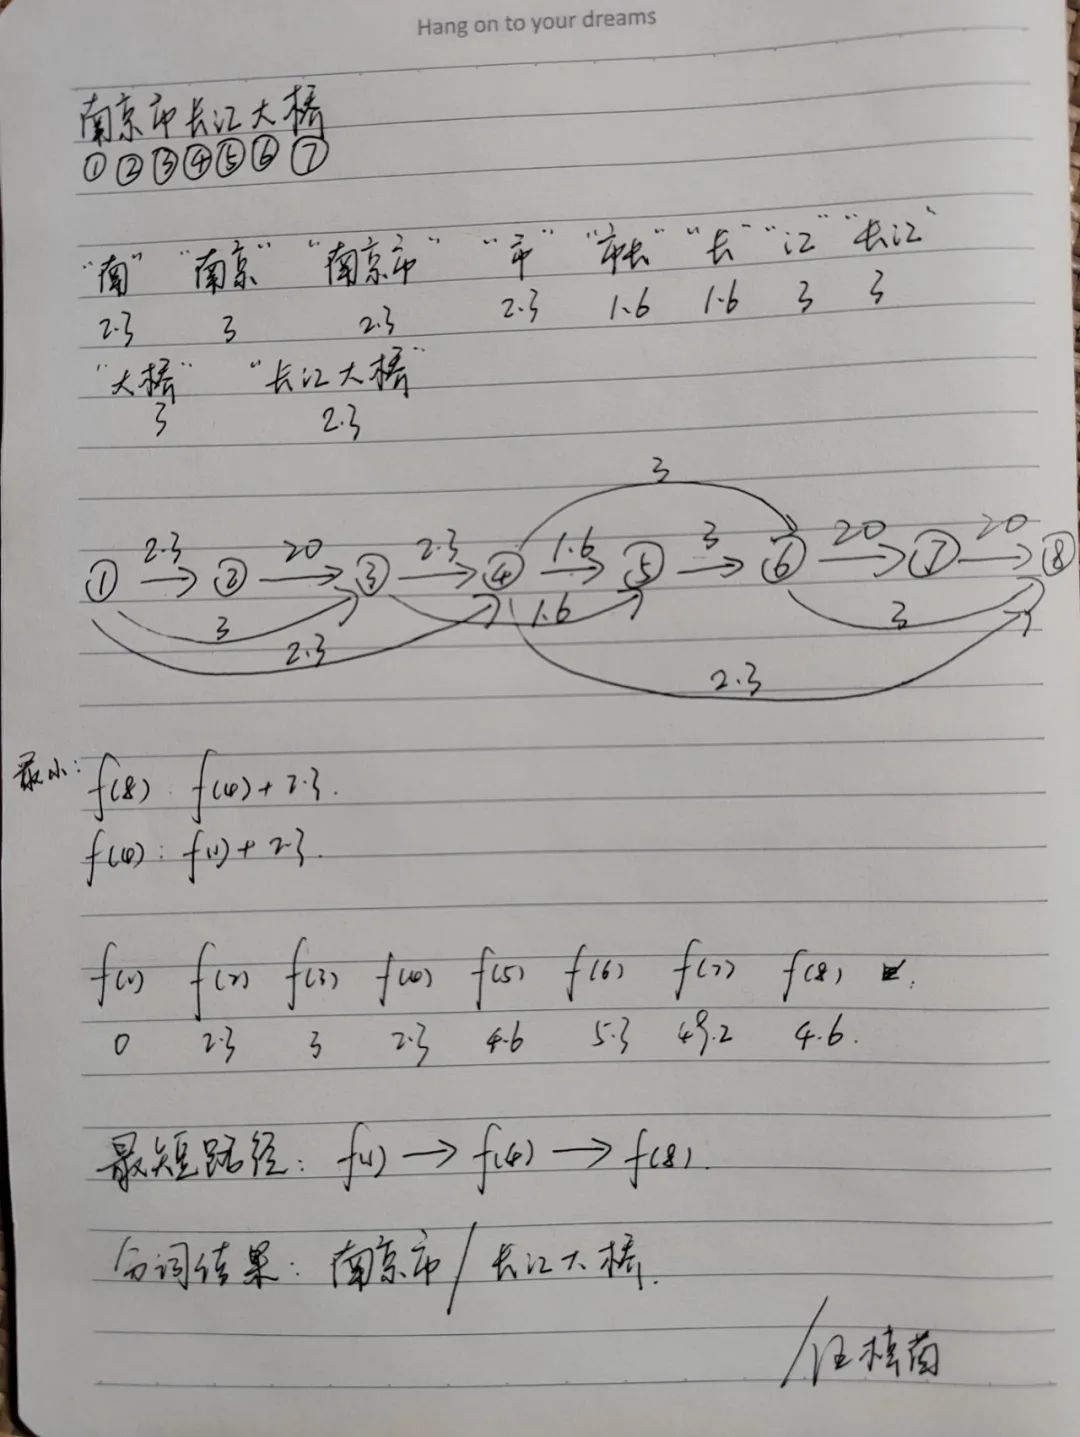 Hang on to your dreams
南京市长江大桥
① ② ③ ④ ⑤ ⑥ ⑦
"南" "南京" "南京市" "市" "市长" "长" "江" "长江"
2.3 3 2.3 2.3 1.6 1.6 3 3
"大桥" "长江大桥"
3 2.3
3
2.3 20 2.3 1.6 3 20 20
① ② ③ ④ ⑤ ⑥ ⑦ ⑧
3 1.6 3
2.3
2.3
最小: f(8): f(4)+2.3.
f(4): f(1)+2.3.
f(1) f(2) f(3) f(4) f(5) f(6) f(7) f(8)
0 2.3 3 2.3 4.6 5.3 49.2 4.6.
最短路径: f(1) → f(4) → f(8).
分词结果: 南京市/长江大桥.